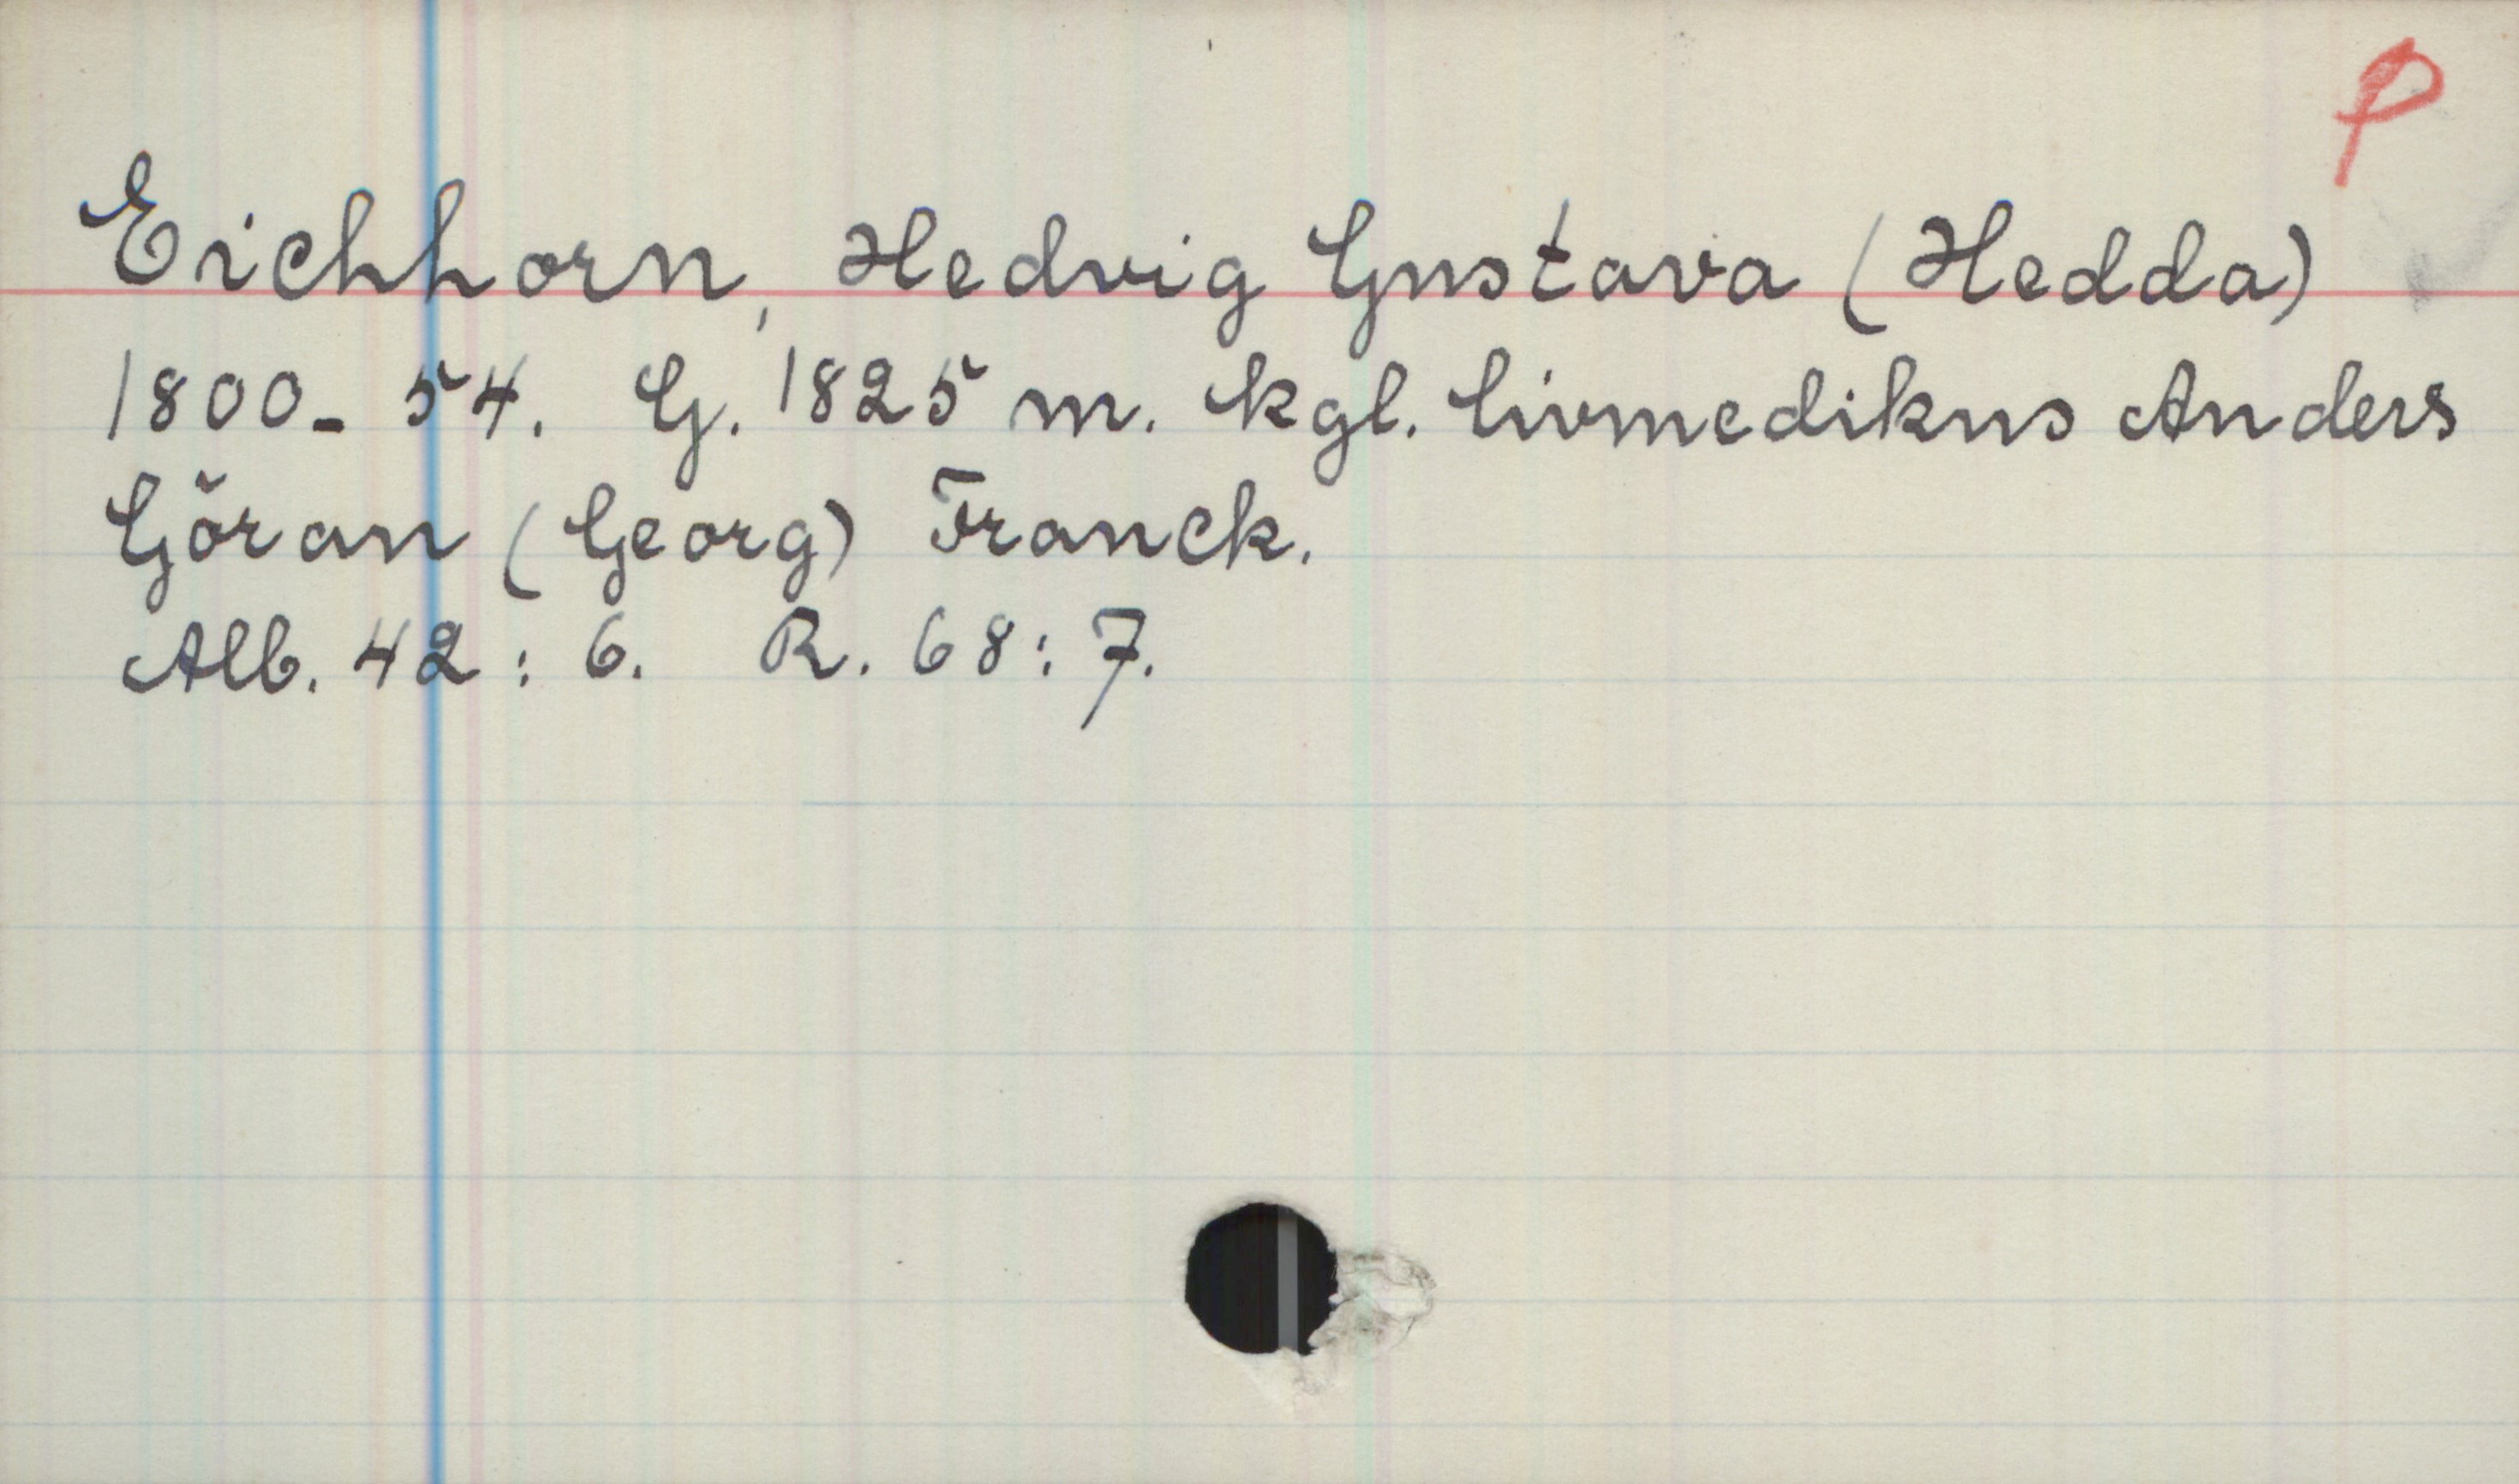 P
Eichhorn, Hedvig Gustava (Hedda)
1800-54. G. 1825 m. kgl. livmedikus Anders
Göran (Georg) Franck.
Alb. 42: 6. R. 68: 7.